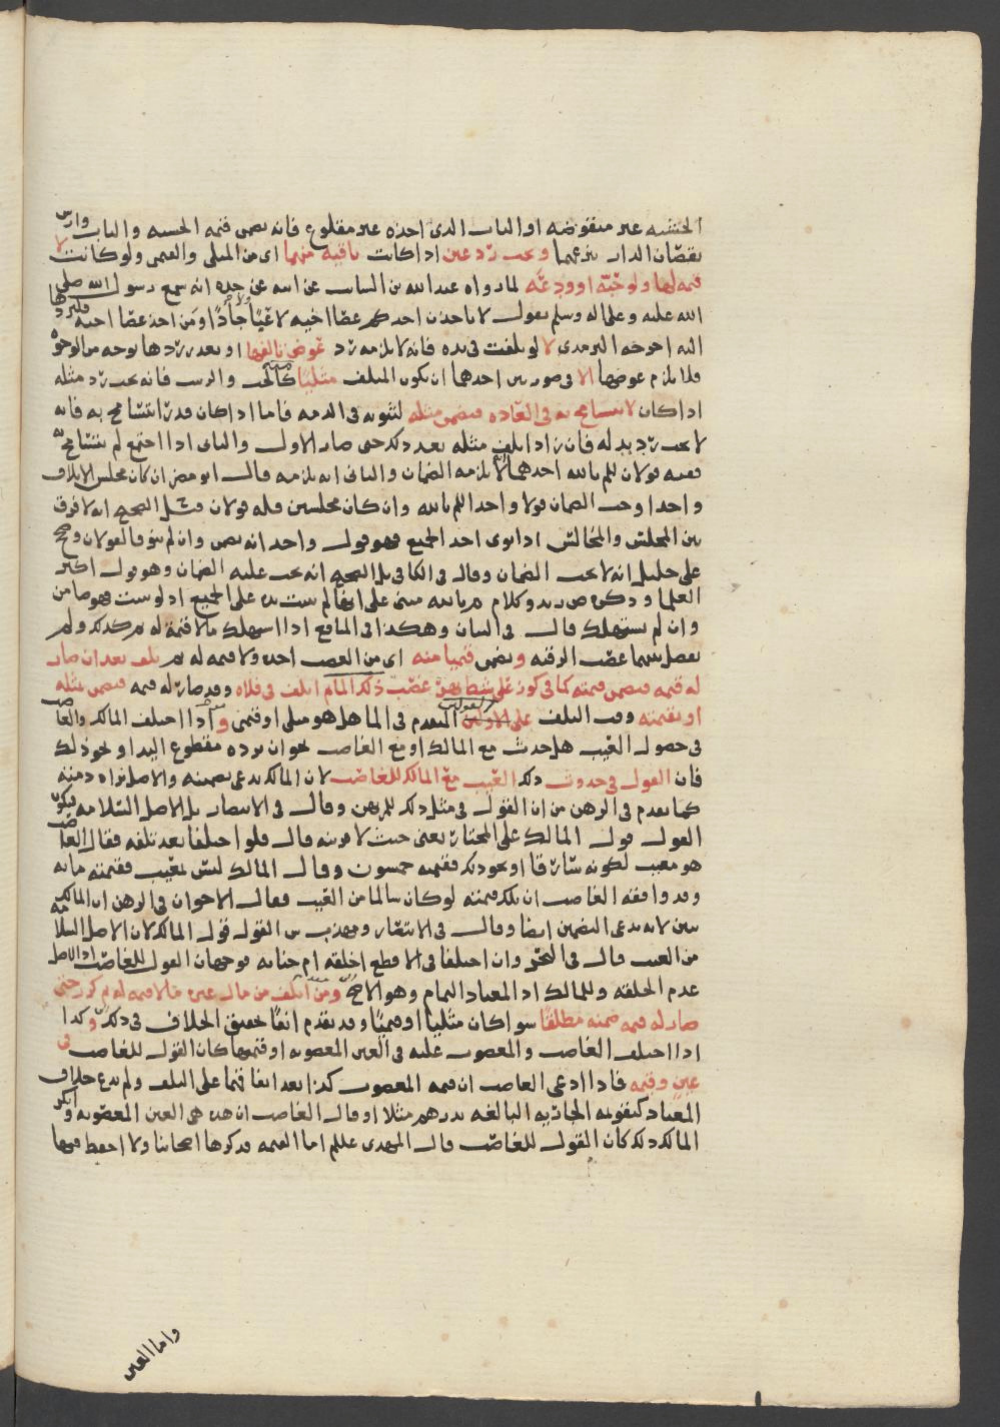 الخشبه غير منقوضه او الباب الذي اخذه غير مقلوع فانه يضمن قيمه الخشبه والباب وارش
نقصان الدار بنزعهما ويجب رد عين اذا كانت باقيه منهما اي من المثلي والقيمي ولو كانت لا
قيمه لها ولو حبه او ودعه لما رواه عبد الله بن السايب عن ابيه عن جده انه سمع رسول الله صلى
الله عليه وعلى اله وسلم يقول لا ياخذن احدكم عصا اخيه لاعبا ولا جادا ومن اخذ عصا اخيه فليردها
اليه اخرجه الترمذي لا لو تلفت في يده فانه لا يلزمه رد عوض تالفها او تعذر ردها بوجه من الوجوه
فلا يلزم عوضها الا في صورتين احدهما ان يكون المتلف مثليا كالحب والزبيب فانه يجب رد مثله
اذا كان لا يتسامح به في العاده فيضمن مثله لثبوته في الذمه فاما اذا كان قدرا يتسامح به فانه
لا يجب رد بدله فان زاد اتلف مثله بعد ذلك حتى صار الاول والثاني اذا اجتمع لم يتسامح به
ففيه قولان للم بالله احدهما لا يلزمه الضمان والثاني انه يلزمه قال ابو مضر ان كان مجلس الاتلاف
واحدا وجب الضمان قولا واحدا للم بالله وان كان مجلسين فله قولان الصحيح انه لا فرق
بين المجلس والمجالس اذا نوى اخذ الجميع فهو قول واحد انه يضمن وان لم ينو فالقولان وصحح
علي خليل انه لا يجب الضمان وقال في الكافي بل الصحيح انه يجب عليه الضمان وهو قول اكثر
العلما وذكره ص زيد وكلام م بالله مبني على انها لم تثبت يده على الجميع اذ لو ثبت فهو ضامن
وان لم يستهلك قال في البيان وهكذا في المنافع اذا استهلك مالا قيمة له ثم كذلك ولم
يفصل بينهما غصب الرقبه ويضمن قيميا منه اي من الغصب اخذه ولا قيمه له ثم تلف بعد ان صار
له قيمه فيضمن قيمته كما في كوز على شط نهر غصب ذلك الماء اتلف في فلاه وقد صار له قيمه فيضمن مثله
او بقيمته وقت التلف على الاولين القولين المتقدم في الما هل هو مثلي او قيمي واذا اختلف المالك والغاصب
في حصول العيب هل حدث مع المالك او مع الغاصب نحو ان يرده مقطوع اليد او نحو ذلك
فان القول في حدوث ذلك العيب مع المالك للغاصب لان المالك يدعي تضمينه والاصل براه ذمته
كما تقدم في الرهن من ان القول في مثل ذلك للمرتهن وقال في الانتصار بل الاصل السلامه فيكون
القول قول المالك على المختار يعني حيث لا قرينه قال فلو اختلفا بعد تلفه فقال الغاصب
هو معيب لكونه سارقا او نحو ذلك فقيمته خمسون وقال المالك ليس بمعيب فقيمته مايه
وقد وافقه الغاصب ان تلك قيمته لو كان سالما من العيب فقال الاخوان في الرهن ان المالك
يبين لانه يدعي التضمين ايضا وقال في الانتصار ومهذب ش القول قول المالك لان الاصل السلامه
من العيب قال في البحر وان اختلفا في الاقطع اخلقه ام جنايه فوجهان القول للغاصب اذ الاصل
عدم الخلقه وللمالك اذ المعتاد التمام وهو الاصح ومن اتلف من مال غيره مالا قيمه له ثم كرر حتى
صار له قيمه ضمنه مطلقا سوا كان مثليا او قيميا وقد تقدم انفا تحقيق الخلاف في ذلك وكذا
اذا اختلف الغاصب والمغصوب عليه في العين المغصوبه او قيمتها كان القول للغاصب في
عين وقيمه فاذا ادعى الغاصب ان قيمه المغصوب كذا بعد اتفاقهما على التلف ولم يدع خلاف
المعتاد كتقويمه الجاريه البالغه بدرهم مثلا او قال الغاصب ان هذه هي العين المغصوبه وانكر
المالك ذلك كان القول للغاصب قال المهدي عللم اما القيمه فذكرها اصحابنا ولا احفظ فيها
واما العين